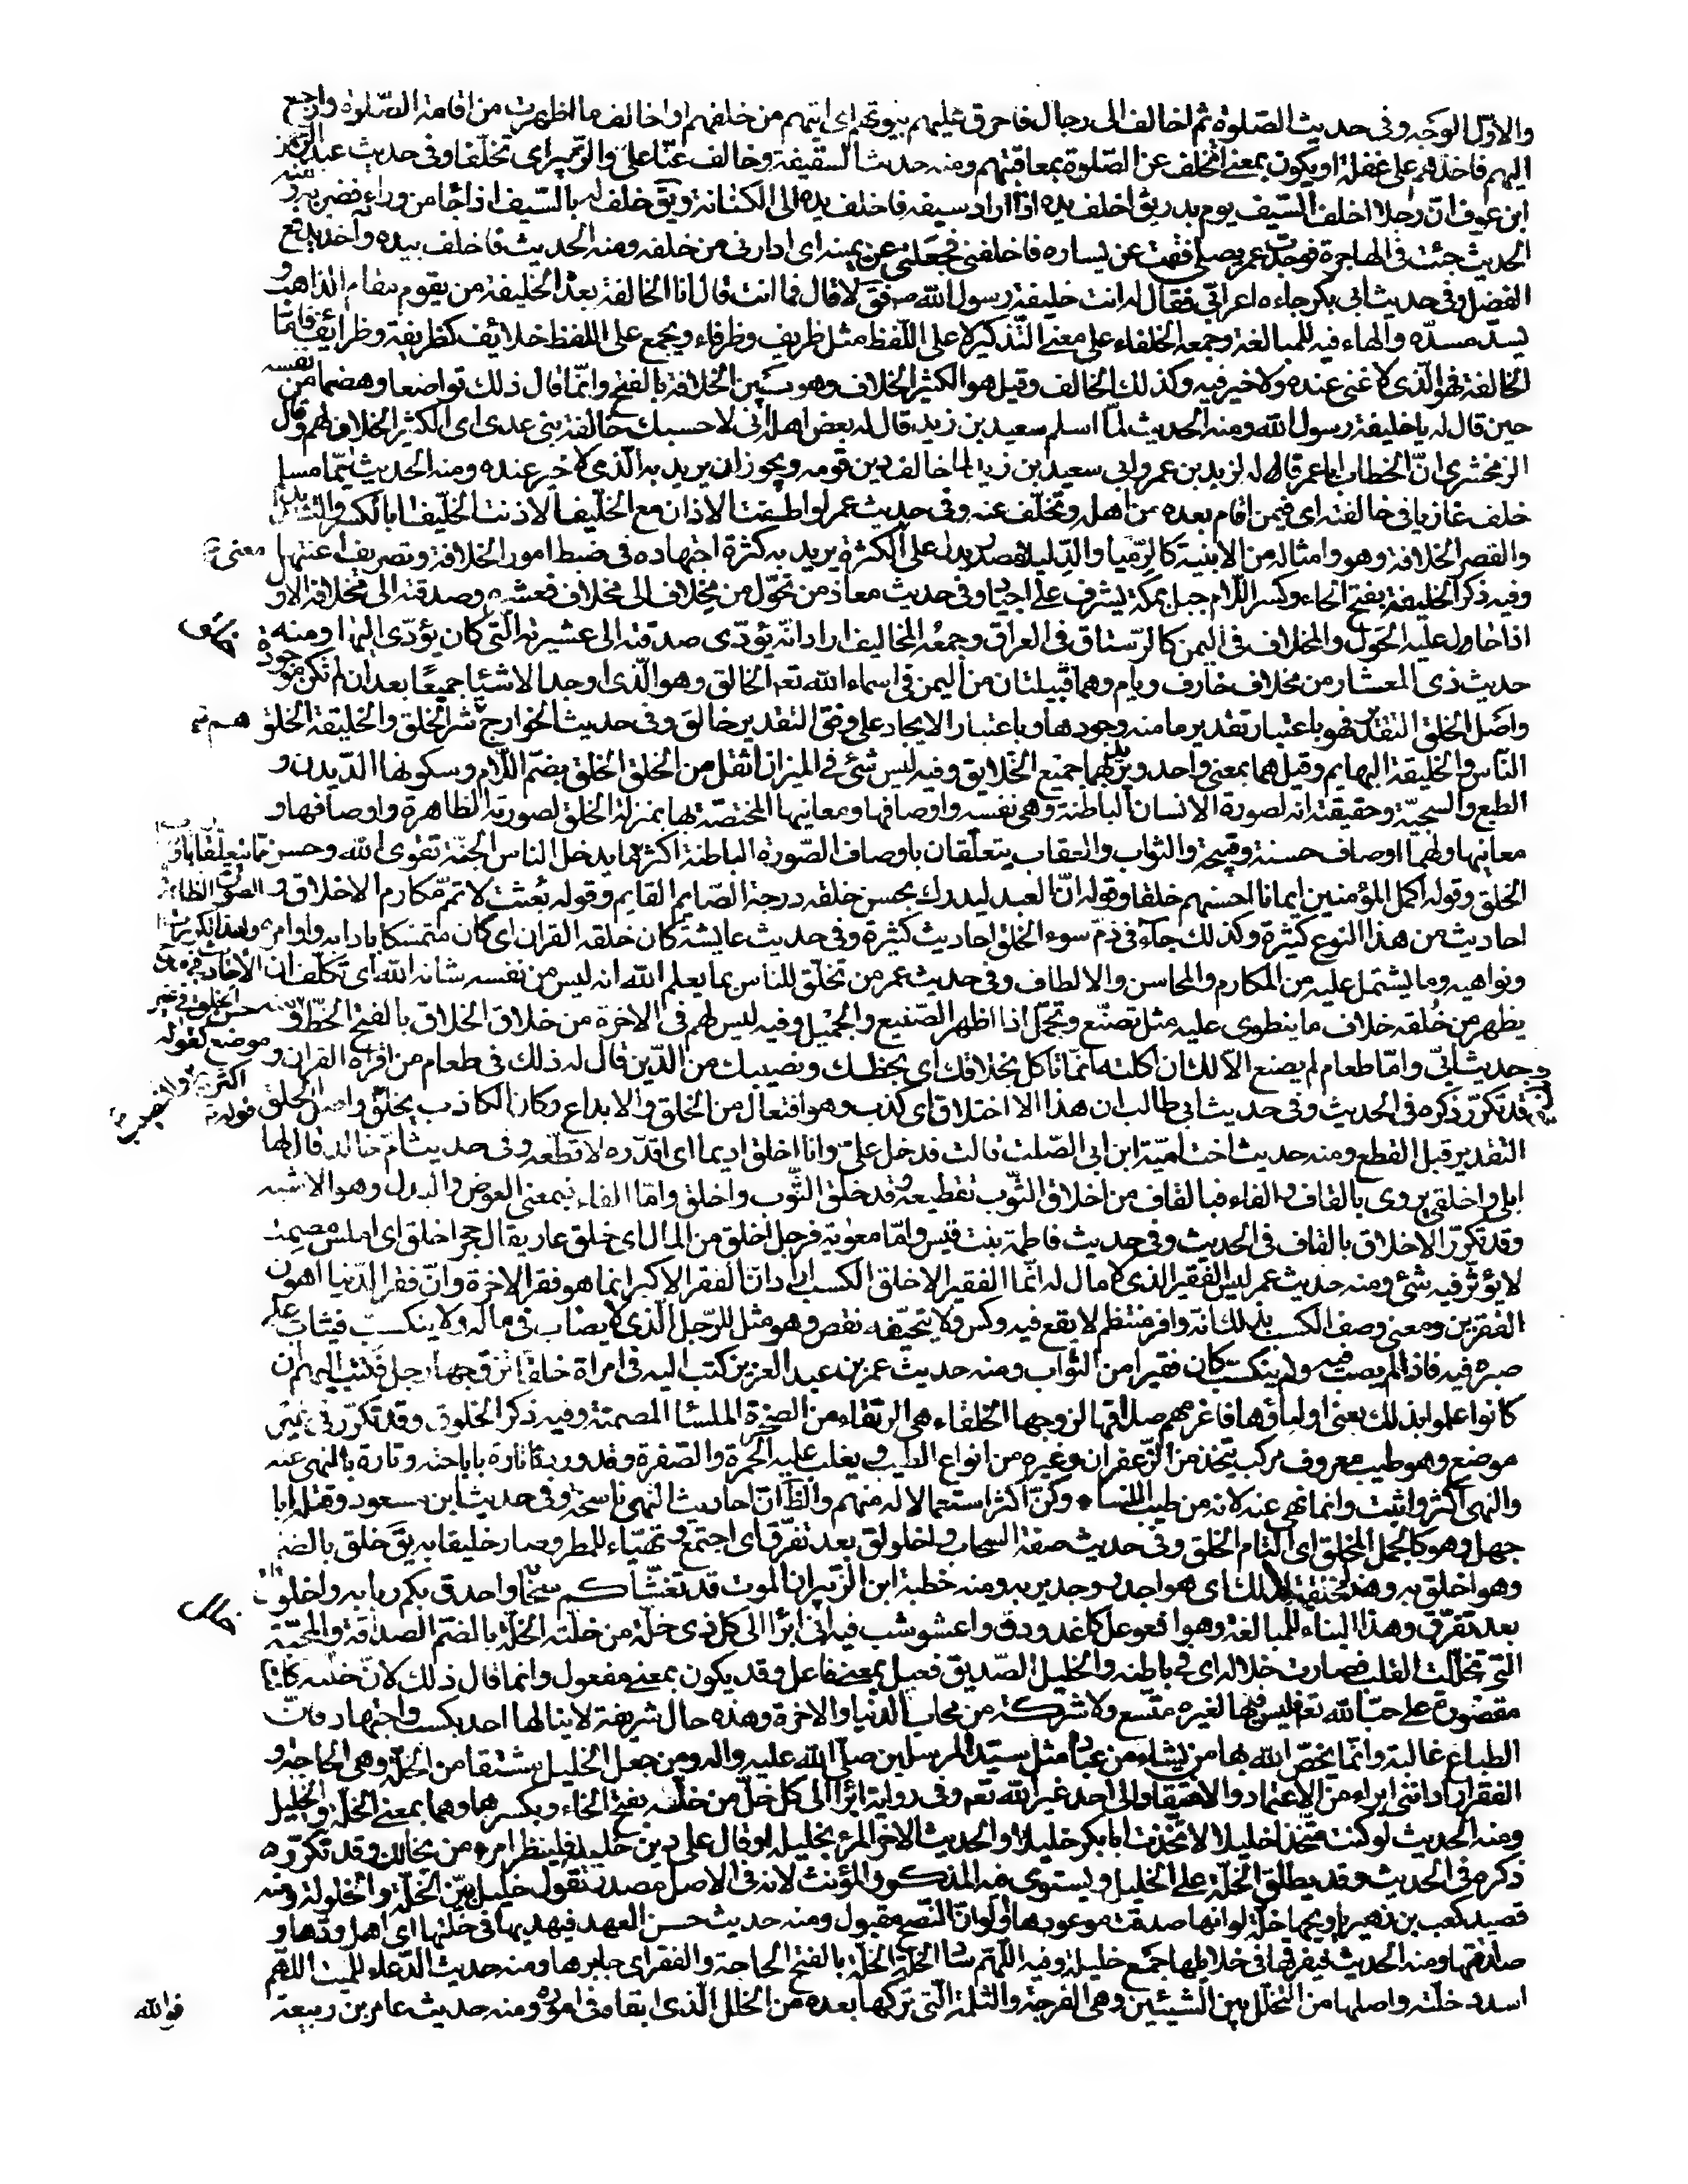 والاوّل الوجه وفى حديث الصّلوة ثم اخالف الى رجال فاحرق عليهم بيوتهم اى اتيهم من خلفهم او اخالف ما اظهرت من اقامة الصّلوة وارجع
اليهم فاخذهم على غفلة او يكون بمعنى اتخلف عن الصّلوة بمعاقبتهم ومنه حديث السقيفة وخالف عنّا علىّ والزّبير اى تخلّفا وفى حديث عبد الرحمن
ابن عوف انّ رجلا اخلف السّيف يوم بدر يق اخلف يده اذا اراد سيفه فاخلف يده الى الكنانة ويق خلف له بالسّيف اذا جاء من ورائه فضربه ومنه
الحديث جئت فى الهاجرة فوجدت عمر يصلى فقمت عن يساره فاخلفنى فجعلنى عن يمينه اى ادارنى من خلفه ومنه الحديث فاخلف بيده واخذ يدفع
الفضل وفى حديث ابى بكر جاءه اعرابىّ فقال له انت خليفة رسول الله ص فق لا قال فما انت قال انا الخالفة بعده الخليفة من يقوم مقام الذاهب و
يسدّ مسدّه والهاء فيه للمبالغة وجمعه الخلفاء على معنى التّذكير لا على اللّفظ مثل ظريف وظرفاء ويجمع على اللفظ خلائف كظريفة وظرائف فامّا
الخالفة فهو الّذى لا غنى عنده ولا خير فيه وكذلك الخالف وقيل هو الكثير الخلاف وهو بيّن الخلافة بالفتح وانّما قال ذلك تواضعا وهضما من نفسه
حين قال له يا خليفة رسول الله ومنه الحديث لمّا اسلم سعيد بن زيد قال له بعض اهله انى لاحسبك خالفة بنى عدى اى الكثير الخلاف لهم وقال
الزمخشرى انّ الخطاب ابا عمر قاله لزيد بن عمرو ابى سعيد بن زيد لما خالف دين قومه ويجوز ان يريد به الّذى لا خير عنده ومنه الحديث ايّما مسلم
خلف غازيا فى خالفته اى فيمن اقام بعده من اهله وتخلّف عنه وفى حديث عمر لو اطقت الاذان مع الخلّيفا لاذنت الخلّيفا بالكسر والتشديد
والقصر الخلافة وهو وامثاله من الابنية كالرّمّيا والدّلّيلا مصدر يدل على الكثرة يريد به كثرة اجتهاده فى ضبط امور الخلافة وتصريف اعنتها
معنى
وفيه ذكر الخليفة بفتح الخاء وكسر اللّام جبل بمكة يشرف على اجياد وفى حديث معاذ من تحوّل من مخلاف الى مخلاف فعشره وصدقته الى مخلافه الاول
اذا حال عليه الحول والمخلاف فى اليمن كالرّستاق فى العراق وجمعه المخاليف اراد انّه يؤدّى صدقته الى عشيرته الّتى كان يؤدّى اليها ومنه
حديث ذى المعشار من مخلاف خارف ويام وهما قبيلتان من اليمن فى اسماء الله تعه الخالق وهو الّذى اوجد الاشياء جميعًا بعد ان لم تكن موجودة
خلق
واصل الخلق التقدير فهو باعتبار تقدير ما منه وجودها وباعتبار الايجاد على وفق التقدير خالق وفى حديث الخوارج شر الخلق والخليقة الخلق
النّاس والخليقة البهايم وقيل هما بمعنى واحد ويريد بهما جميع الخلايق وفيه ليس شئ فى الميزان اثقل من الخلق الخلق بضمّ اللّام وسكونها الدّين و
الطبع والسجيّة وحقيقته انه لصورة الانسان الباطنة وهى نفسه واوصافها ومعانيها المختصّة بها بمنزلة الخلق لصورته الظاهرة واوصافها و
معانيها ولهما اوصاف حسنة وقبيحة والثواب والعقاب يتعلّقان باوصاف الصّورة الباطنة اكثر ما يدخل الناس الجنّة تقوى الله وحسن
الخلق وقوله اكمل المؤمنين ايمانا احسنهم خلقا وقوله انّ العبد ليدرك بحسن خلقه درجة الصّايم القايم وقوله بعثت لاتمّم مكارم الاخلاق و
احاديث من هذا النوع كثيرة وكذلك جآء فى ذمّ سوء الخلق احاديث كثيرة وفى حديث عايشة كان خلقه القران اى كان متمسّكا بادابه واوامره
ونواهيه وما يشتمل عليه من المكارم والمحاسن والالطاف وفى حديث عمر من تخلّق للناس بما يعلم الله انه ليس من نفسه شانه الله اى تكلّف ان
يظهر من خُلقه خلاف ما ينطوى عليه مثل تصنّع وتجمّل اذا اظهر الصّنيع والجميل وفيه ليس لهم فى الاخرة من خلاق الخلاق بالفتح الحظّ و
حديث ابىّ وامّا طعام لم يصنع الّا لك ان اكلته انّما تاكل بخلاقك اى بحظك ونصيبك من الدّين قال له ذلك فى طعام من اقرأه القران و
قد تكرّر ذكره فى الحديث وفى حديث ابى طالب ان هذا الا اختلاق اى كذب وهو افتعال من الخلق والابداع وكان الكاذب يخلق قوله واصل الخلق
التقدير قبل القطع ومنه حديث اخت اميّة ابن ابى الصّلت قالت فدخل علىّ وانا اخلق اديما اى اقدّره لاقطّعه وفى حديث امّ خالد قال لها
ابلى واخلقى يروى بالقاف والفاء فبالقاف من اخلاق الثّوب تقطيعه وقد خلق الثّوب واخلق وامّا الفاء فبمعنى العوض والبدل وهو الاشبه
وقد تكرّر الاخلاق بالقاف فى الحديث وفى حديث فاطمة بنت قيس وامّا معوية فرجل اخلق من المال اى خلق عار يقال حجر اخلق اى املس مصمت
لا يؤثّر فيه شئ ومنه حديث عمر ليس الفقير الذى لا مال له انّما الفقير الاخلق الكسب اراد انّ الفقر الاكبر انما هو فقر الاخرة وانّ فقر الدّنيا اهون
الفقرين ومعنى وصف الكسب بذلك انّه وافر منتظم لا يقع فيه وكس ولا يتحيّفه نقص وهو مثل للرّجل الّذى لا يصاب فى ماله ولا ينكب فيثاب على
صبره فيه فاذا لم يصب فيه ولم ينكب كان فقيرا من الثواب ومنه حديث عمر بن عبد العزيز كتب اليه فى امراة خلقاء تزوّجها رجل فكتب اليه ان
كانوا علموا بذلك يعنى اولياؤها فاغرمهم صداقها لزوجها الخلقاء هى الرّتقاء من الصّخرة الملساء المصمتة وفيه ذكر الخلوق وقد تكرّر فى غير
موضع وهو طيب معروف مركب يتّخذ من الزّعفران وغيره من انواع الطيب ويغلب عليه الحمرة والصّفرة وقد ورد تارة باباحته وتارة بالنهى عنه
والنهى اكثر واثبت وانما نهى عنه لانه من طيب النساء وكنّ اكثر استعمالا له منهم والظّ انّ احاديث النهى ناسخة وفى حديث ابن مسعود وقتله ابا
جهل وهو كالجمل المخلّق اى التام الخلق وفى حديث صفة السحاب واخلولق بعد تفرّق اى اجتمع وتهيّاء للمطر وصار خليقا به يق خلق بالضم
وهو اخلق به وهذا مخلقة لذلك اى هو اجدر وجدير به ومنه خطبة ابن الزّبير ان الموت قد تغشّاكم سحابه واحدق بكم ربابه واخلولق
بعد تفرّق وهذا البناء للمبالغة وهو افعوعل كاغدودق واعشوشب فيه انى ابرأ الى كل ذى خلّة من خلّته الخلّة بالضم الصداقة والمحبّة
خلل
التى تخلّلت القلب فصارت خلاله اى فى باطنه والخليل الصّديق فعيل بمعنى فاعل وقد يكون بمعنى مفعول وانما قال ذلك لانّ خلّته كانت
مقصورة على حبّ الله تعه فليس فيها لغيره متّسع ولا شركة من محاب الدنيا والاخرة وهذه حال شريفة لا ينالها احد بكسب واجتهاد فانّ
الطباع غالبة وانّما يخصّ الله بها من يشاء من عباده مثل سيّد المرسلين صلّى الله عليه واله ومن جعل الخليل مشتقا من الخلّة وهى الحاجة و
الفقر اراد اننى ابراء من الاعتماد والافتقار الى احد غير الله تعه وفى رواية ابرأ الى كل خلّ من خلّته بفتح الخاء وبكسرها وهما بمعنى الخلّة والخليل
ومنه الحديث لو كنت متّخذا خليلا لاتّخذت ابا بكر خليلا والحديث الاخر المرء بخليله او قال على دين خليله فلينظر امرء من يخالل وقد تكرّر
ذكره فى الحديث وقد يطلق الخلّة على الخليل ويستوى فيه المذكر والمؤنث لانه فى الاصل مصدر تقول خليل بيّن الخلّة والخلولة ومنه
قصيد كعب بن زهير يا ويحها خلّة لو انها صدقت موعودها او لو انّ النّصح مقبول ومنه حديث حسن العهد فيهديها فى خلّتها اى اهل ودّها و
صداقتها ومنه الحديث فيفرقها فى خلائلها جمع خليلة وفيه اللّهمّ سادّ الخلّة الخلّة بالفتح الحاجة والفقر اى جابرها ومنه حديث الدّعاء للميت اللهّم
اسدد خلّته واصلها من التخلّل بين الشيئين وهى الفرجة والثلمة الّتى تركها بعده من الخلل الّذى ابقاه فى اموره ومنه حديث عامر بن ربيعة
فوالله